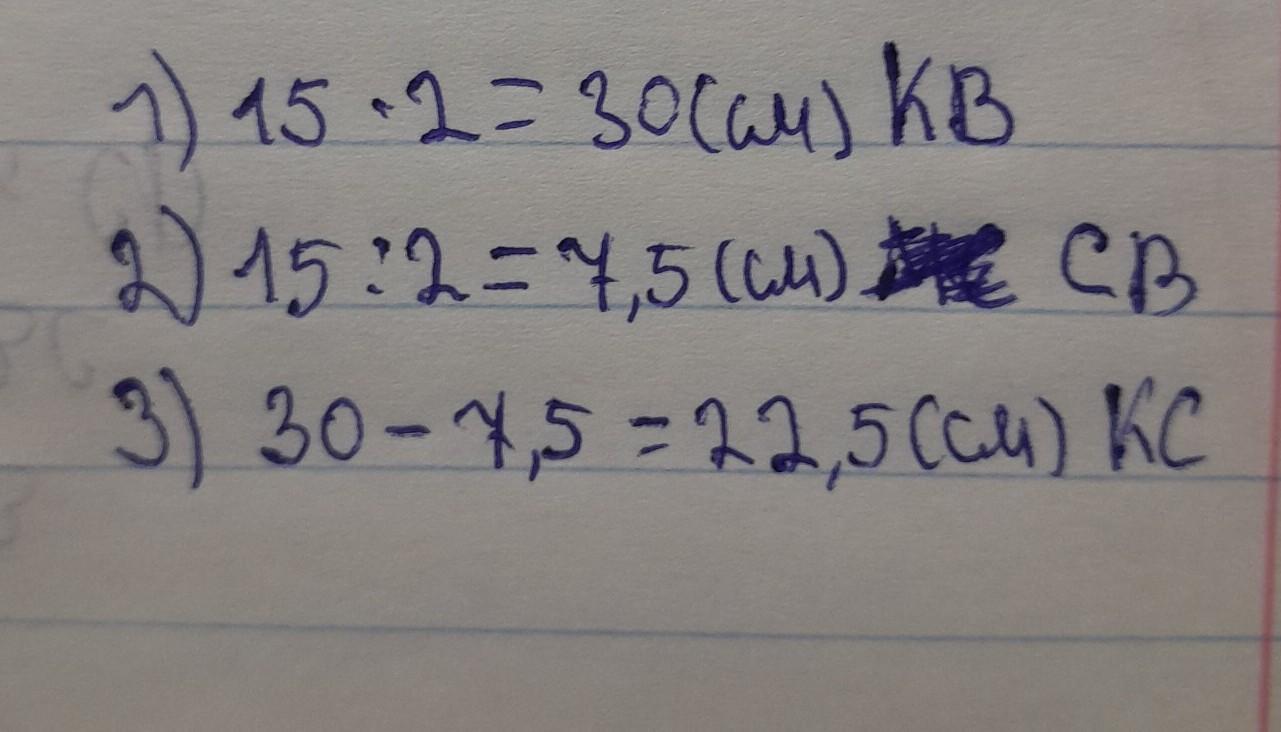 1) 15 · 2 = 30 (см) KB
2) 15 : 2 = 7,5 (см) CB
3) 30 - 7,5 = 22,5 (см) KC